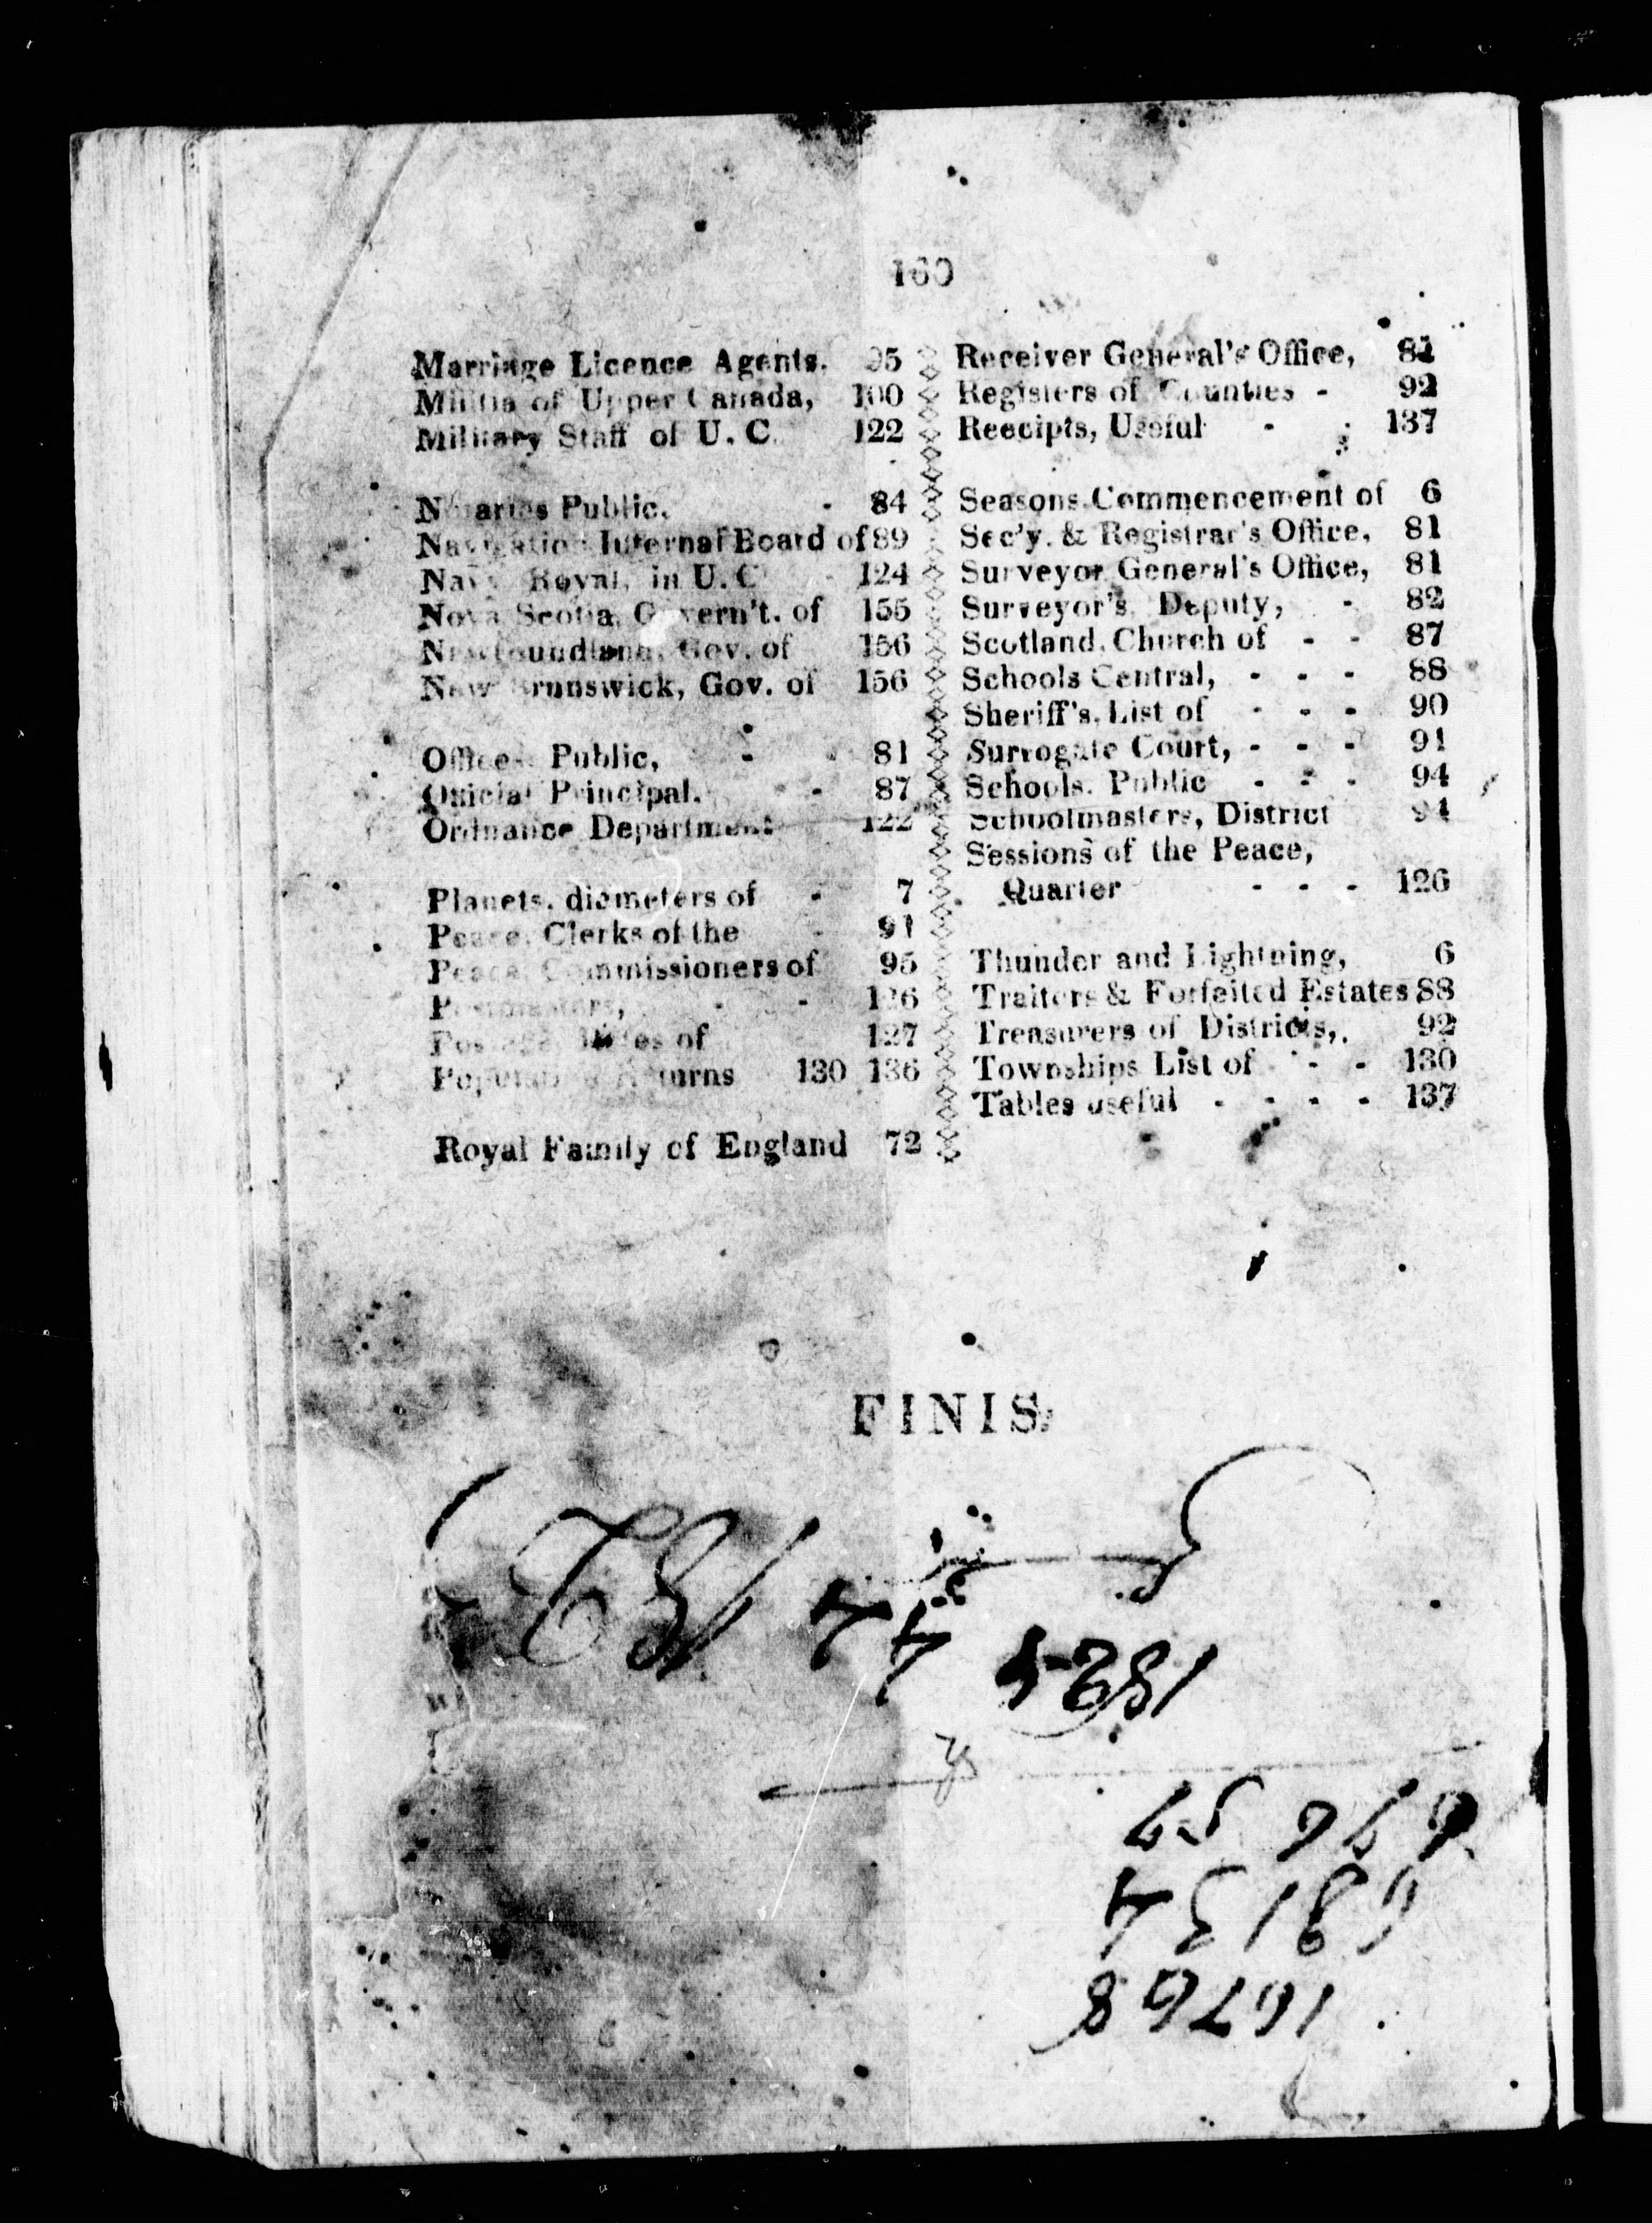 160
Marriage Licence Agents. 95
Militia of Upper Canada, 100
Military Staff of U. C. 122
Notaries Public. - 84
Navigation Internal Board of 89
Navy Royal, in U. C - 124
Nova Scotia, Govern't. of 155
Newfoundland, Gov. of 156
New Brunswick, Gov. of 156
Offices Public, - - 81
Official Principal. - 87
Ordnance Department 122
Planets. diameters of - 7
Peace, Clerks of the - 91
Peace Commissioners of 95
Postmasters, - - 126
Postage, Rates of 127
Population Returns 130 136
Royal Family of England 72
Receiver General's Office, 81
Registers of Counties - 92
Reecipts, Useful - - 137
Seasons. Commencement of 6
Sec'y. & Registrar's Office, 81
Surveyor General's Office, 81
Surveyor's Deputy, - 82
Scotland, Church of - - 87
Schools Central, - - - 88
Sheriff's, List of - - - 90
Surrogate Court, - - - 91
Schools. Public - - - 94
Schoolmasters, District 94
Sessions of the Peace,
Quarter - - - 126
Thunder and Lightning, 6
Traitors & Forfeited Estates 88
Treasurers of Districts,. 92
Townships List of - - 130
Tables useful - - - - 137
FINIS.
1824
16768